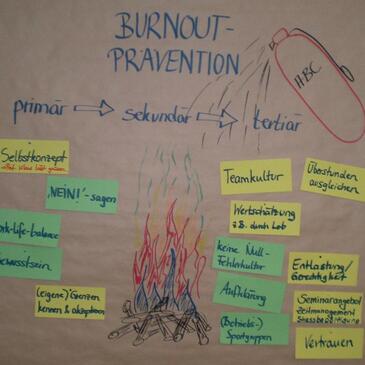 BURNOUT-
PRÄVENTION
primär
sekundär
tertiär
Selbstkonzept
"NEIN!"-sagen
rk-life-balance
ewusstsein
(eigene) Grenzen
kennen & akzeptieren
Teamkultur
Überstunden
ausgleichen
Wertschätzung
z.B. durch Lob
keine Null-
Fehlerkultur
Entlastung/
Gerechtigkeit
Aufklärung
Seminarangebot
Zeitmanagement
Stressbewältigung
(Betriebs-)
Sportgruppen
Vertrauen